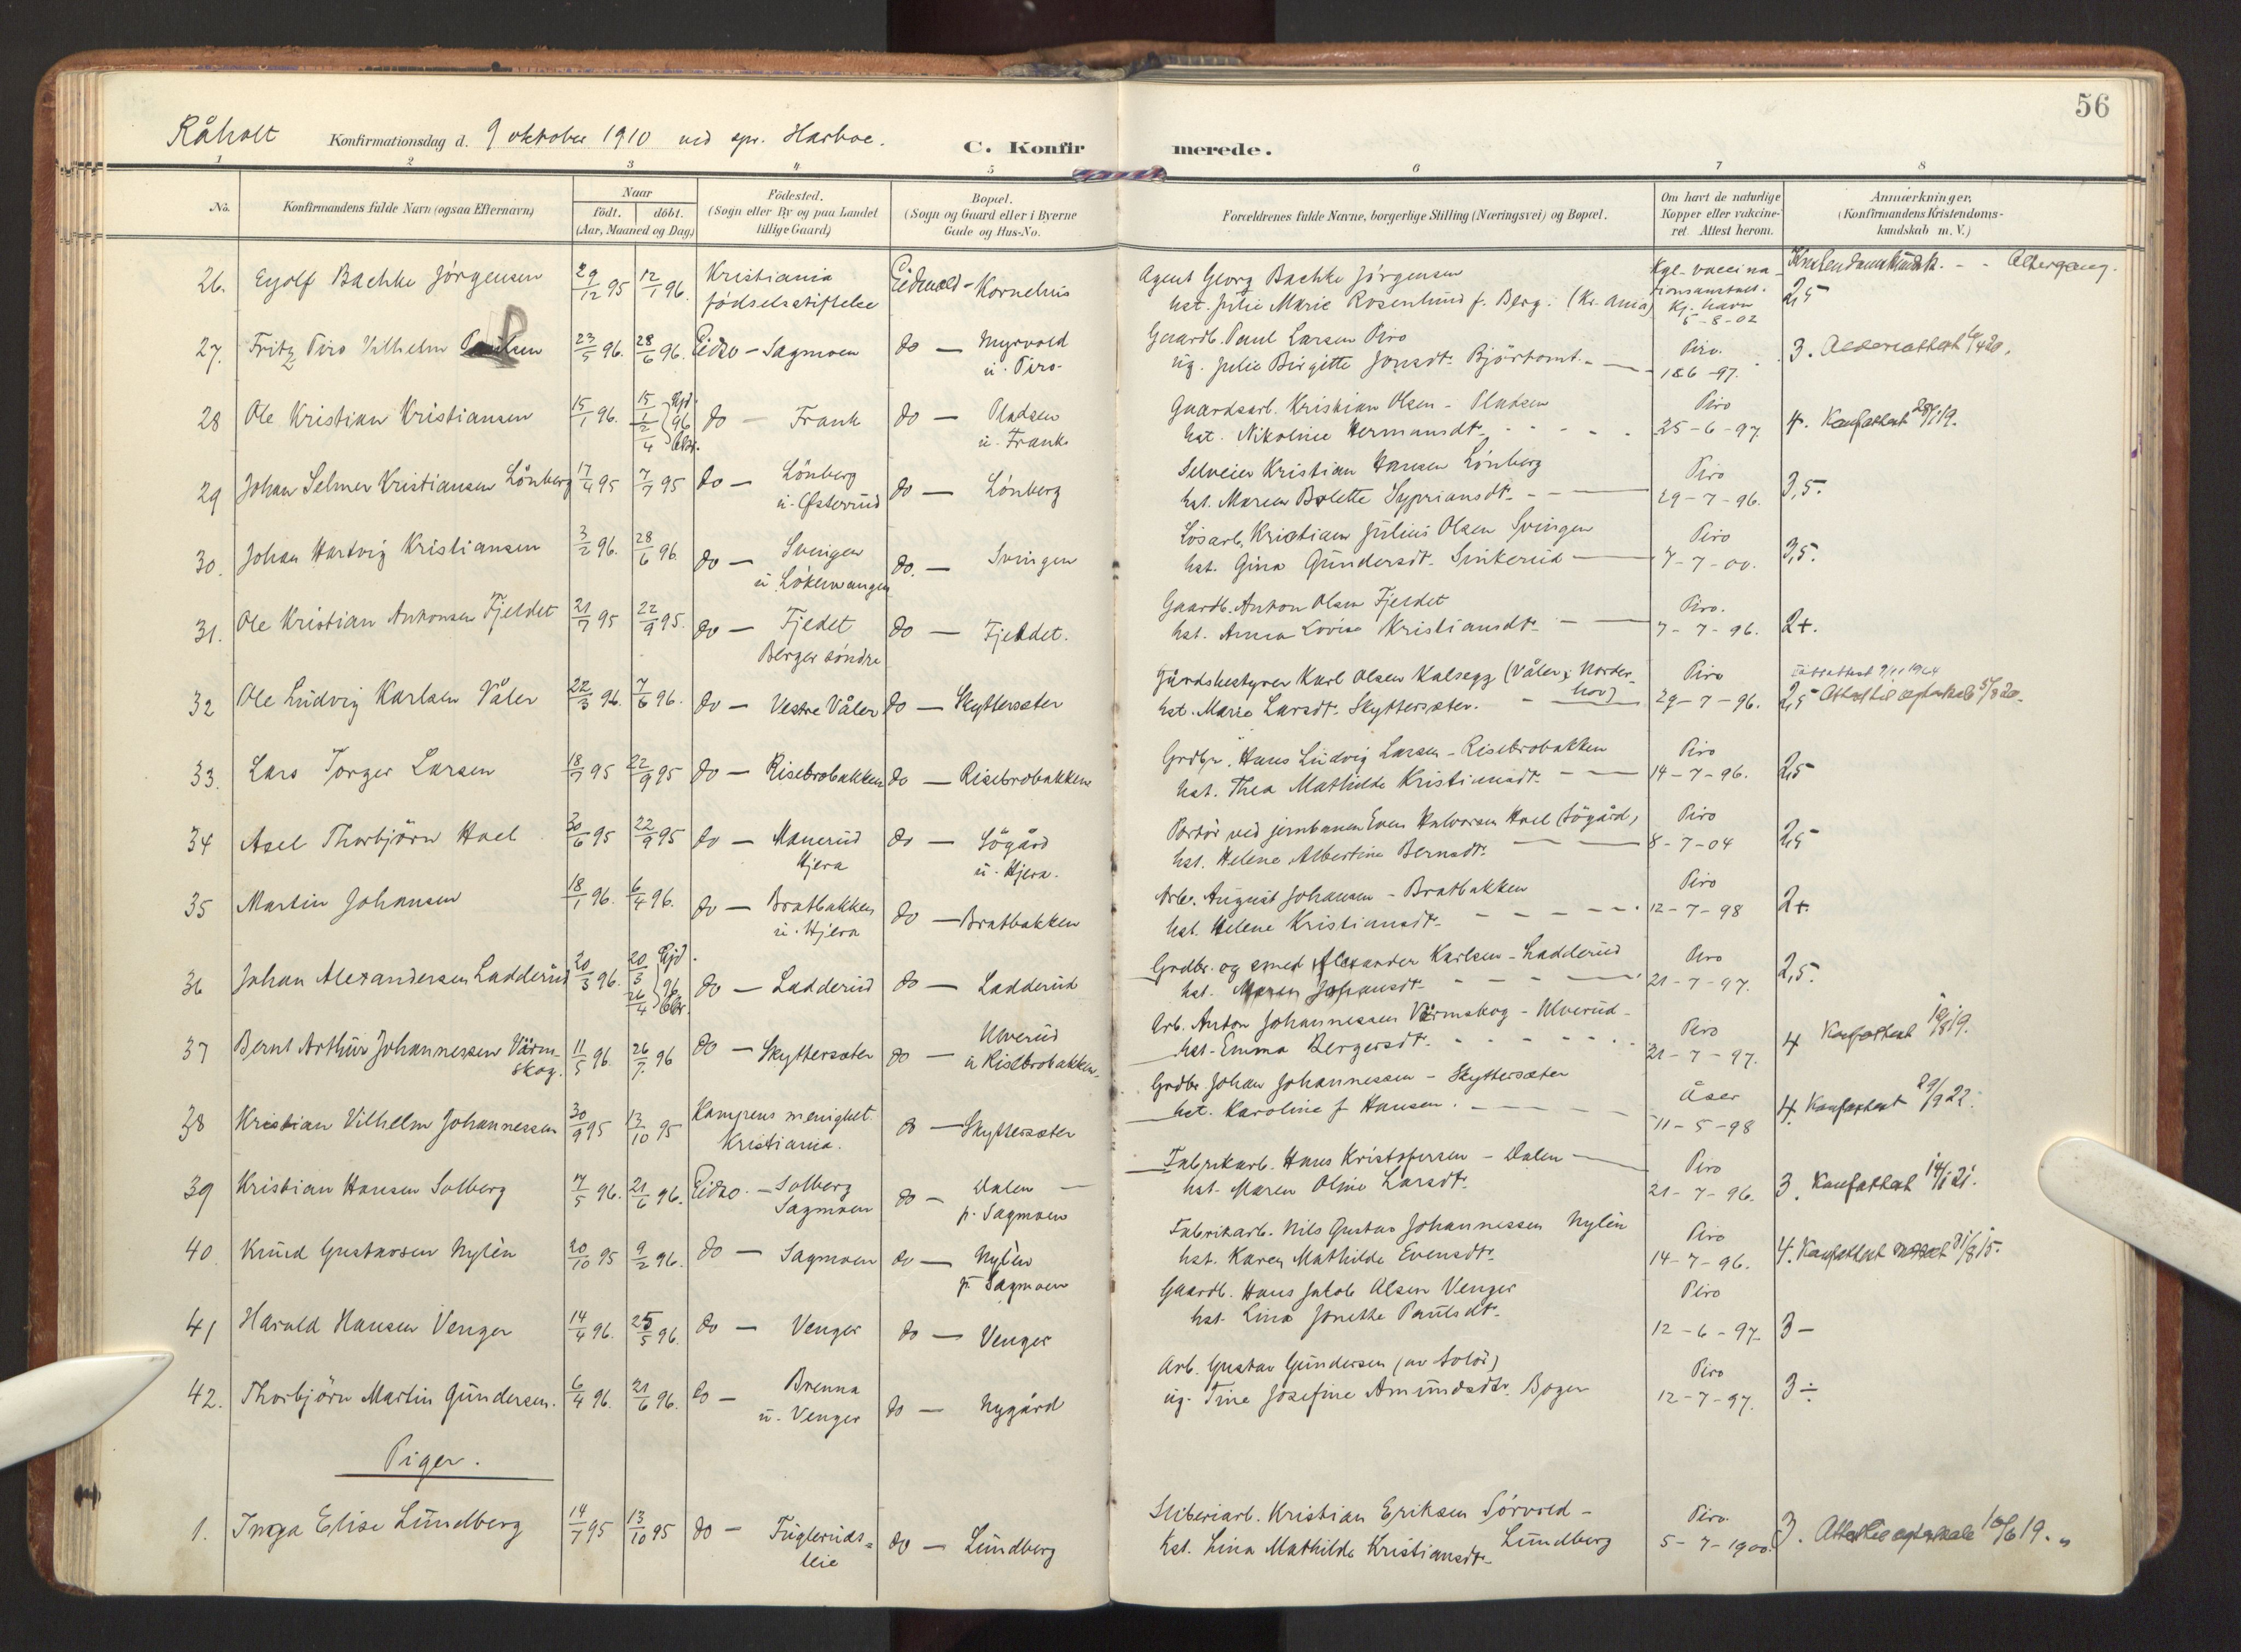 56
Råholt Konfirmationsdag d. 9 oktober 1910 ved spr. Harboe.
C. Konfirmerede.
1 2 3 4 5 6 7 8
No.
Konfirmandens fulde Navn (ogsaa Efternavn)
Naar
födt. döbt.
(Aar, Maaned og Dag)
Födested.
(Sogn eller By og paa Landet
tillige Gaard)
Bopæl.
(Sogn og Gaard eller i Byerne
Gade og Hus-No.
Forældrenes fulde Navne, borgerlige Stilling (Næringsvei) og Bopæl.
Om havt de naturlige
Kopper eller vakcine-
ret. Attest herom.
Anmærkninger,
(Konfirmandens Kristendoms-
kundskab m. V.)
Kristendomskundsk. - - Altergang.
26. Eyolf Bachke Jörgensen 29/12 95 12/1 96. Kristiania fødselsstiftelse Eidsvold - Kornelius
Agent Georg Bachke Jörgensen
hst. Julie Marie Rosenlund f. Berg. (Kr. ania)
Kgl. vaccinationsanstalt. Kj. havn 5-8-02 2,5
27. Fritz Piro Vilhelm 23/5 96. 28/6 96. Eidsv - Sagmoen do - Myrvold u. Piro
Gaardb. Paul Larsen Piro
ug. Julie Birgitte Jonsdt. Björtomt.
Piro. 18-6-97. 3. Aldersattest 4/20.
28 Ole Kristian Kristiansen 15/1 96. 15/1 2/4 96 do - Frank do - Pladsen u. Frank
Gaardsarb. Kristian Olsen - Pladsen
hst. Nikoline Hermansdt.
Piro 25-6-97 4. Konfattest 19.
29 Johan Selmer Kristiansen Lönberg 17/4 95 7/7 95 do - Lönberg u. Østerrud do - Lönberg
Selveier Kristian Hansen Lönberg
hst. Maren Bolette Sypriansdt.
Piro 29-7-96. 3,5.
30. Johan Hartvig Kristiansen 3/2 96. 28/6 96. do - Svingen u. Lökenvangen do. - Svingen
Lösarb. Kristian Julius Olsen Svingen
hst. Gina Gundersdt. Sinkerud
Piro 7-7-00. 3,5.
31. Ole Kristian Antonsen Fjeldet 21/7 95 22/9 95. do - Fjedet Berger söndre do - Fjeldet.
Gaardb. Anton Olsen Fjeldet
hst. Anna Lovise Kristiansdt.
Piro. 7-7-96. 2+.
32 Ole Ludvig Karlsen Våler 22/3 96. 7/6 96. do - Vestre Våler do - Skyttersæter
Gårdsbestyrer Karl Olsen Kalsegg (Våler; Norderhov)
hst. Marie Larsdt. Skyttersæter.
Piro 29-7-96. 2,5 Attest til egteskab 5/8 20.
33. Lars Torger Larsen 18/7 95 22/9 95 do - Risebrobakken do - Risebrobakken
Grdbr. Hans Ludvig Larsen - Risebrobakken
hst. Thea Mathilde Kristiansdt.
Piro 14-7-96. 2,5
34 Axel Thorbjörn Hoel 30/6 95 22/9 95 do - Manerud Hjera do - Sögård u. Hjera.
Portör ved jernbanen Even Halvorsen Hoel (Sögård)
hst. Helene Albertine Berntsdt.
Piro 8-7-04 2,5
35 Martin Johansen 18/1 96. 6/4 96. do - Bratbakken u. Hjera do - Bratbakken
Arb. August Johansen - Bratbakken
hst. Helene Kristiansdt.
Piro 12-7-98 2+.
36 Johan Alexandersen Ladderud 20/3 96. 20/3 26/4 96 do - Ladderud do - Ladderud
Grdbr. og smed Alexander Karlsen - Ladderud
hst. Maren Johansdt.
Piro 21-7-97. 2,5.
37 Bernt Arthur Johannessen Värmskog. 11/5 96. 26/7 96 do - Skyttersæter do - Ulverud u Risebrobakken.
Arb. Anton Johannessen Värmskog - Ulverud
hst. Emma Bergersdt.
Piro 21-7-97. 4 Konfattest 10/8 19.
38 Kristian Vilhelm Johannessen 30/9 95 13/10 95 Kampens menighet Kristiania. do - Skyttersæter
Grdbr. Johan Johannessen - Skyttersæter
hst. Karoline f. Hansen.
Åser 11-5-98 4. Konfattest 29/9 22.
39 Kristian Hansen Solberg 7/5 96. 21/6 96. Eidsv. - Solberg Sagmoen do - Dalen p. Sagmoen
Fabrikarb. Hans Kristofersen - Dalen
hst. Maren Oline Larsdt.
Piro 21-7-96. 3. Konfattest 14/1 21.
40 Knud Gustavsen Nylèn 20/10 95 9/2 96. do - Sagmoen do - Nylèn p. Sagmoen
Fabrikarb. Nils Gustav Johannessen Nylèn
hst. Karen Mathilde Evensdt.
Piro 14-7-96. 4. Konfattest 31/8 15.
41 Harald Hansen Venger 14/4 96. 25/5 96. do - Venger do - Venger
Gaardb. Hans Jakob Olsen Venger
hst. Lina Jonette Paulsdt.
Piro 12-6-97. 3-
42. Thorbjörn Martin Gundersen. 6/4 96. 21/6 96. do - Brenna u. Venger do - Nygård
Arb. Gustav Gundersen (av Solör)
ug. Tine Josefine Amundsdtr. Bøger
Piro 12-7-97. 3÷
Piger.
1. Inga Elise Lundberg 14/7 95 13/10 95 do - Fuglerudseie do - Lundberg
Sliberiarb. Kristian Eriksen Sörvold - Lundberg
hst. Lina Mathilde Kristiansdt.
Piro. 5-7-1900. 3. Attest til egteskab 10/6 19.